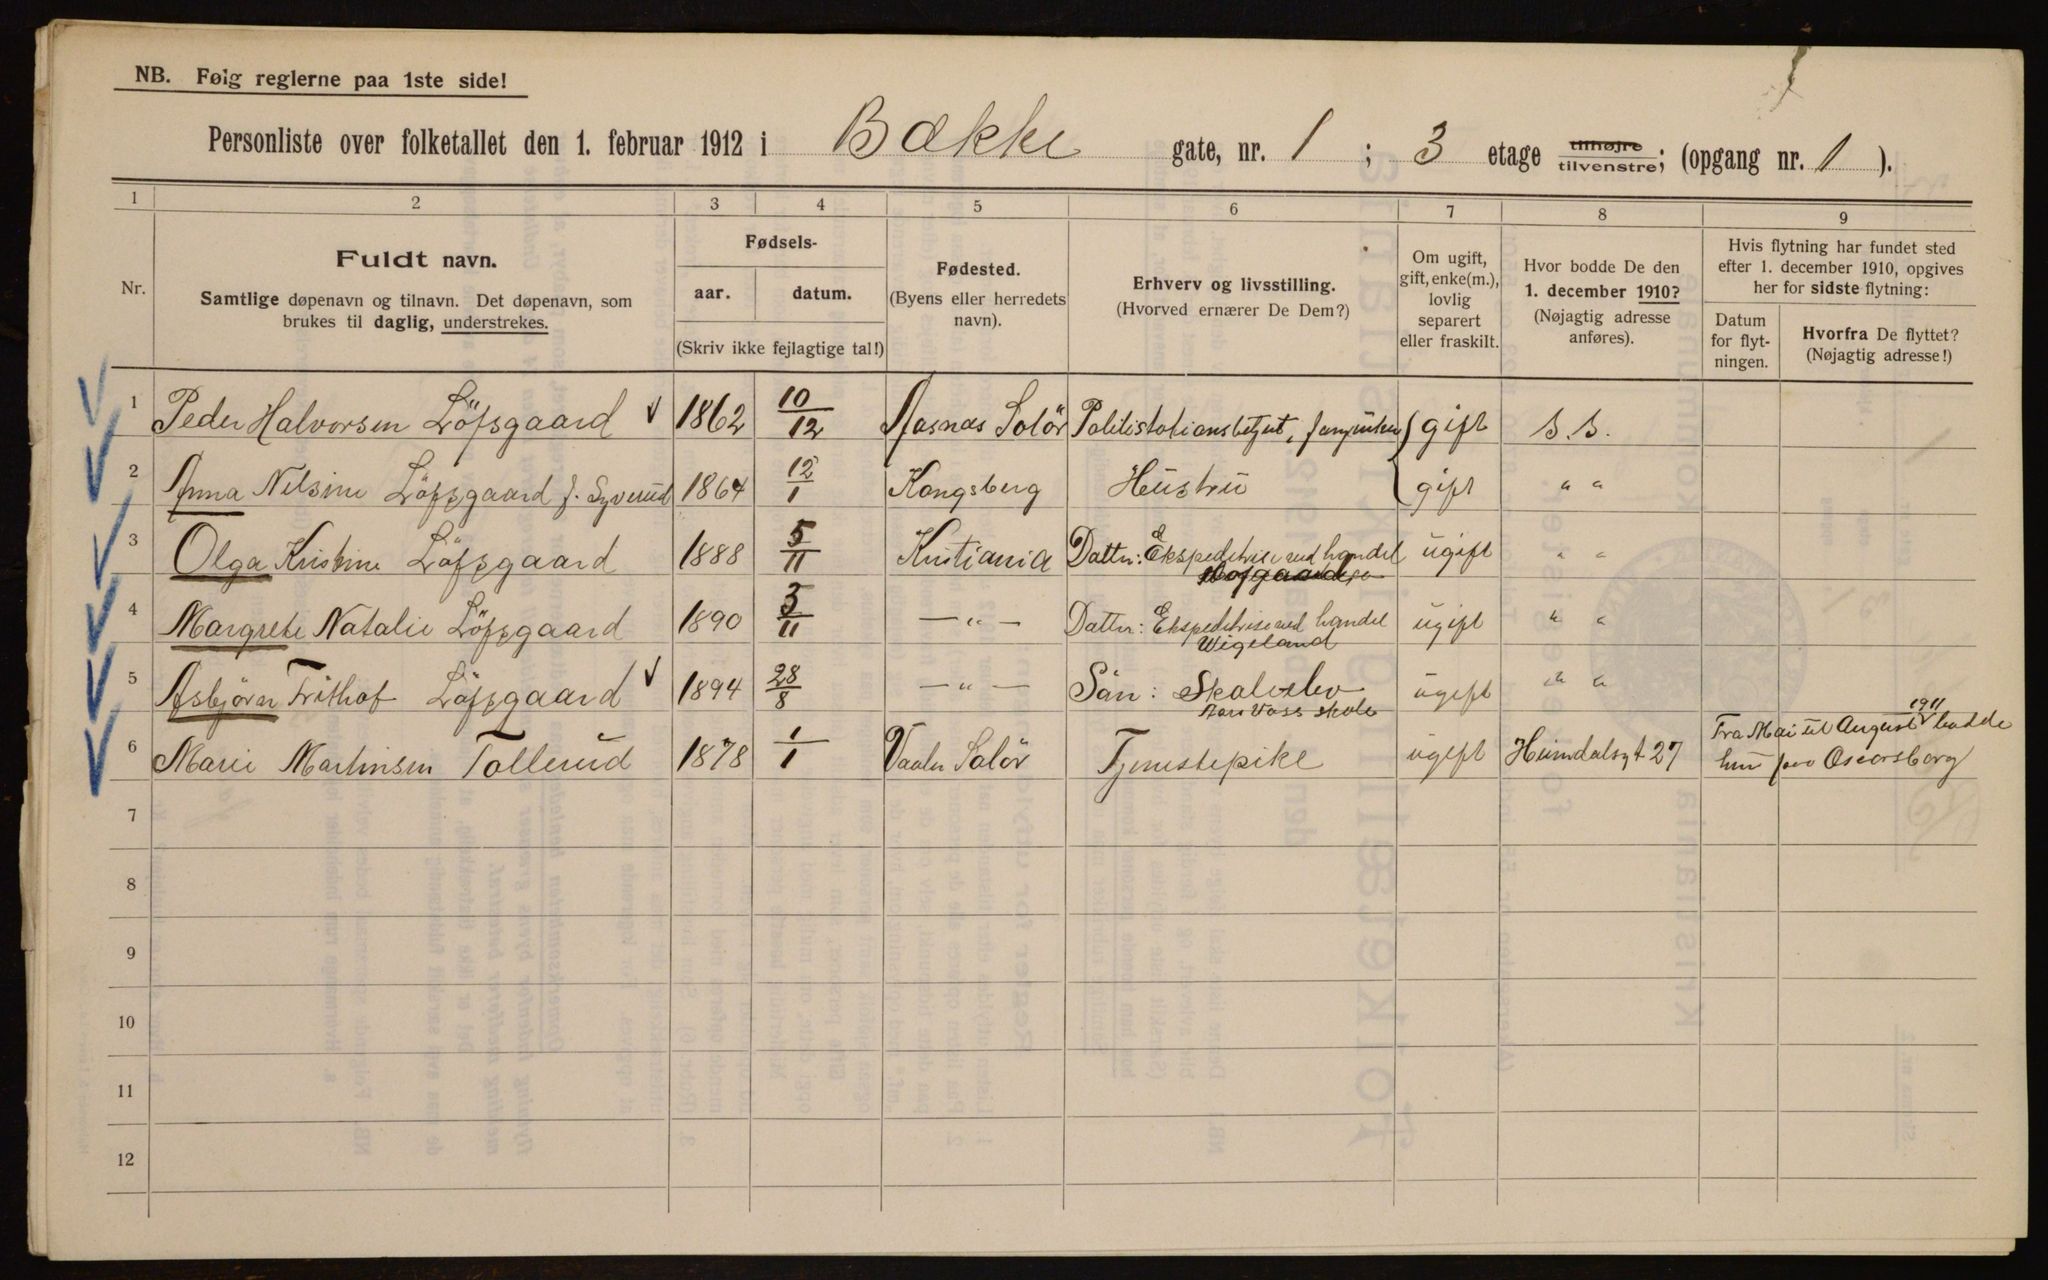 NB. Følg reglerne paa 1ste side!
Personliste over folketallet den 1. februar 1912 i Bække gate, nr. 1 ; 3 etage tilhøjre tilvenstre; (opgang nr. 1 ).
1 2 3 4 5 6 7 8 9
Nr.
Fuldt navn.
Samtlige døpenavn og tilnavn. Det døpenavn, som
brukes til daglig, understrekes.
Fødsels-
aar. datum.
(Skriv ikke fejlagtige tal!)
Fødested.
(Byens eller herredets
navn).
Erhverv og livsstilling.
(Hvorved ernærer De Dem?)
Om ugift,
gift, enke(m.),
lovlig
separert
eller fraskilt.
Hvor bodde De den
1. december 1910?
(Nøjagtig adresse
anføres).
Hvis flytning har fundet sted
efter 1. december 1910, opgives
her for sidste flytning:
Datum
for flyt-
ningen.
Hvorfra De flyttet?
(Nøjagtig adresse!)
1 Peder Halvorsen Löfsgaard 1862 10/12 Aasnas Solör Politistationsbetjent, gift s. s.
2 Anna Nilsine Löfsgaard f. Syverud 1864 12/1 Kongsberg Hustru gift " "
3 Olga Kristine Löfsgaard 1888 5/11 Kristiania Dattr: Ekspeditrise ved handel ugift " "
4 Margrete Natalie Löfsgaard 1890 3/11 — " — Dattr: Ekspeditrise ved handel ugift " "
Wigeland
5 Asbjörn Frithof Löfsgaard 1894 28/8 — " — Sön: Skoleelev ugift " "
Aars Voss skole
6 Marie Martinsen Tollerud 1878 1/1 Vaaler Solör Tjenestepike ugift Heimdalsgt 27 Fra Mai til August 1911 bodde
hun paa Oscarsborg
7
8
9
10
11
12